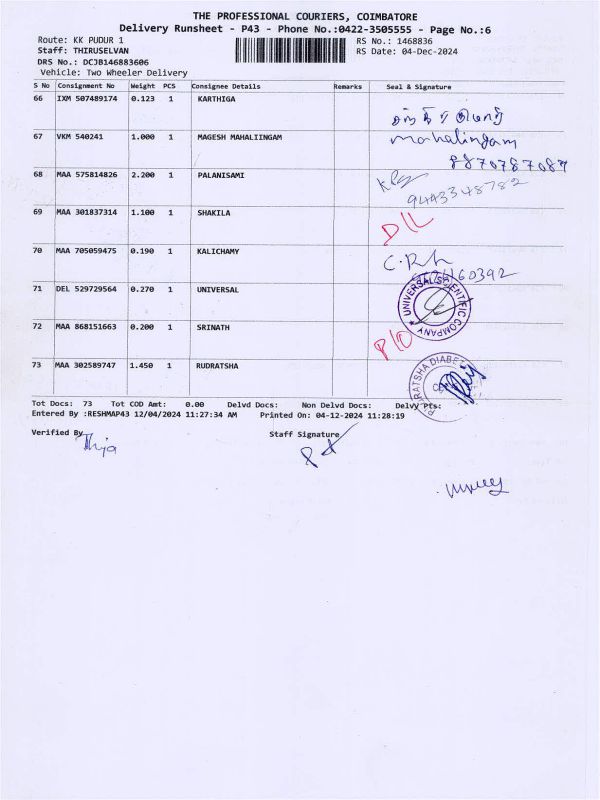 THE PROFESSIONAL COURIERS, COIMBATORE
Delivery Runsheet - P43 - Phone No.:0422-3505555 - Page No.:6
Route: KK PUDUR 1 RS No.: 1468836
Staff: THIRUSELVAN RS Date: 04-Dec-2024
DRS No.: DCJB146883606
Vehicle: Two Wheeler Delivery
S No Consignment No Weight PCS Consignee Details Remarks Seal & Signature
66 IXM 507489174 0.123 1 KARTHIGA
67 VKM 540241 1.000 1 MAGESH MAHALIINGAM Mahalingam
8870787087
68 MAA 575814826 2.200 1 PALANISAMI
9443348782
69 MAA 301837314 1.100 1 SHAKILA D/L
70 MAA 705059475 0.190 1 KALICHAMY
71 DEL 529729564 0.270 1 UNIVERSAL UNIVERSAL SCIENTIFIC COMPANY
72 MAA 868151663 0.200 1 SRINATH P/O
73 MAA 302589747 1.450 1 RUDRATSHA
Tot Docs: 73 Tot COD Amt: 0.00 Delvd Docs: Non Delvd Docs: Delvy Pts:
Entered By :RESHMAP43 12/04/2024 11:27:34 AM Printed On: 04-12-2024 11:28:19
Verified By Staff Signature